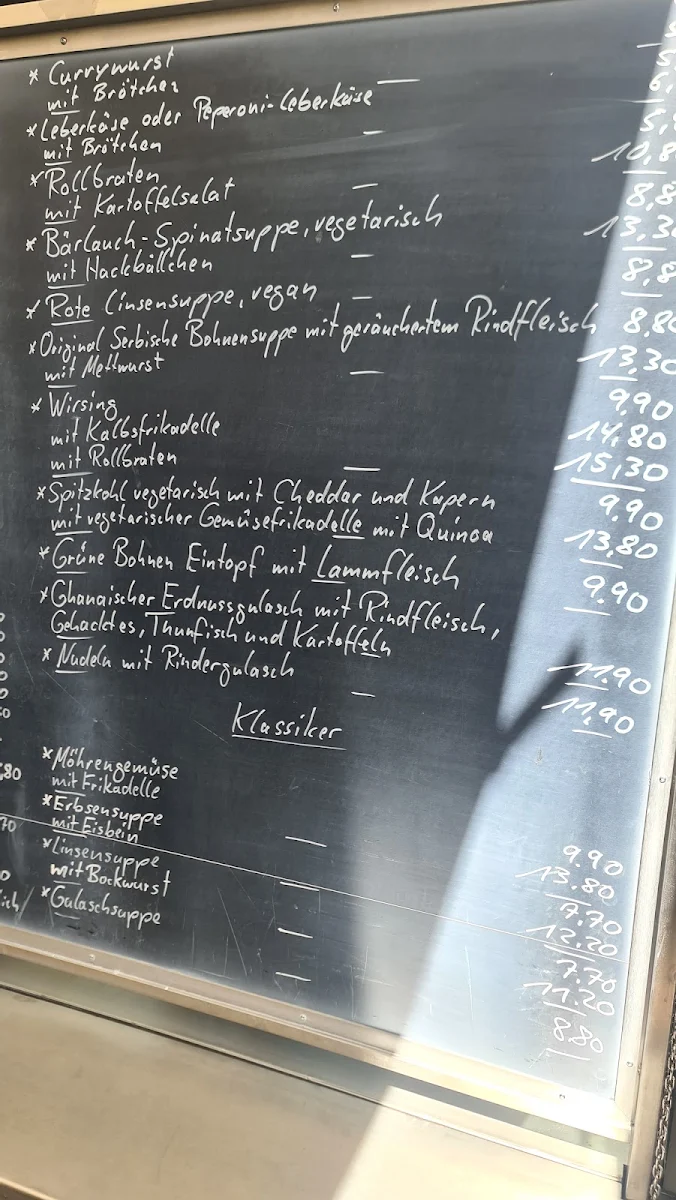 * Currywurst
mit Brötchen
* Leberkäse oder Peperoni-Leberkäse
mit Brötchen
* Rollbraten 10,8
mit Kartoffelsalat 8,8
* Bärlauch-Spinatsuppe, vegetarisch 13,3
mit Hackbällchen 8,8
* Rote Linsensuppe, vegan 8,80
* Original Serbische Bohnensuppe mit geräuchertem Rindfleisch 13,30
mit Mettwurst
* Wirsing 9,90
mit Kalbsfrikadelle 14,80
mit Rollbraten 15,30
* Spitzkohl vegetarisch mit Cheddar und Kapern 9,90
mit vegetarischer Gemüsefrikadelle mit Quinoa 13,80
* Grüne Bohnen Eintopf mit Lammfleisch 9,90
* Ghanaischer Erdnussgulasch mit Rindfleisch,
Gehacktes, Thunfisch und Kartoffeln 11,90
* Nudeln mit Rindergulasch 11,90
Klassiker
* Möhrengemüse 9,90
mit Frikadelle 13,80
* Erbsensuppe 7,70
mit Eisbein 12,20
* Linsensuppe 7,70
mit Bockwurst 11,20
* Gulaschsuppe 8,80